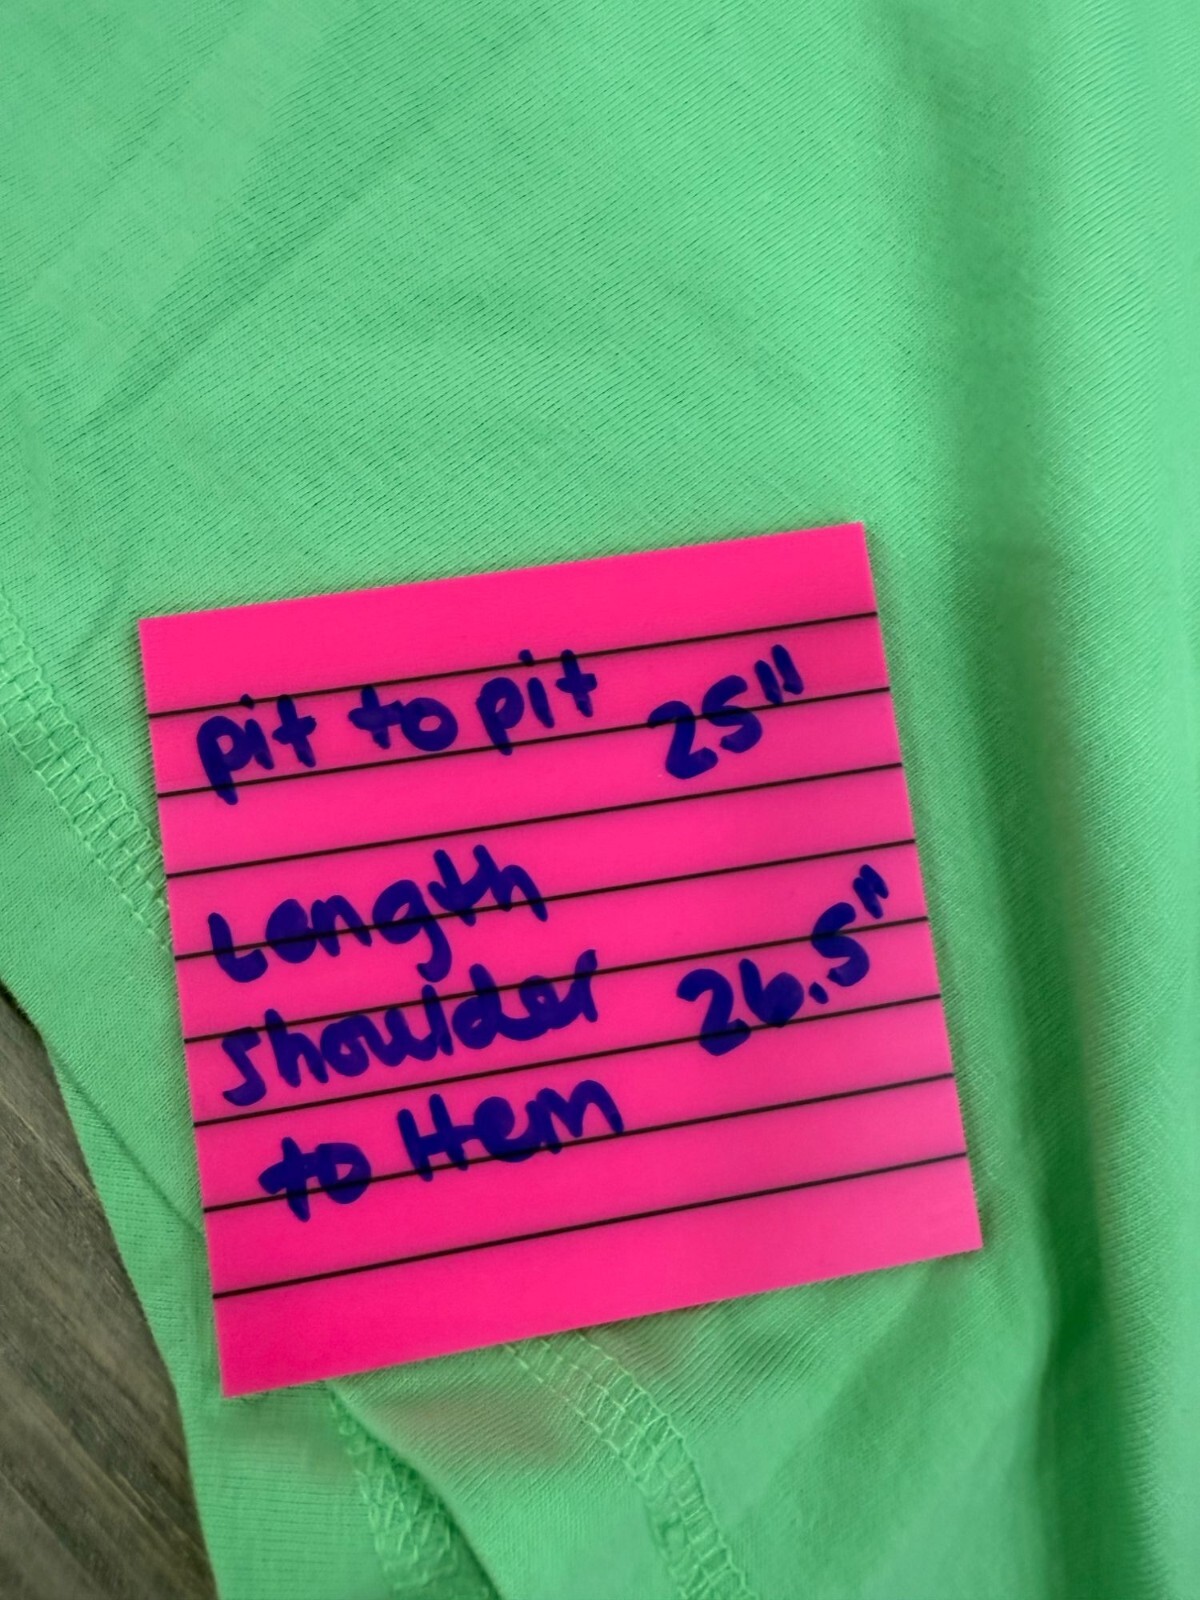 pit to pit 25"
Length
shoulder 26.5"
to Hem